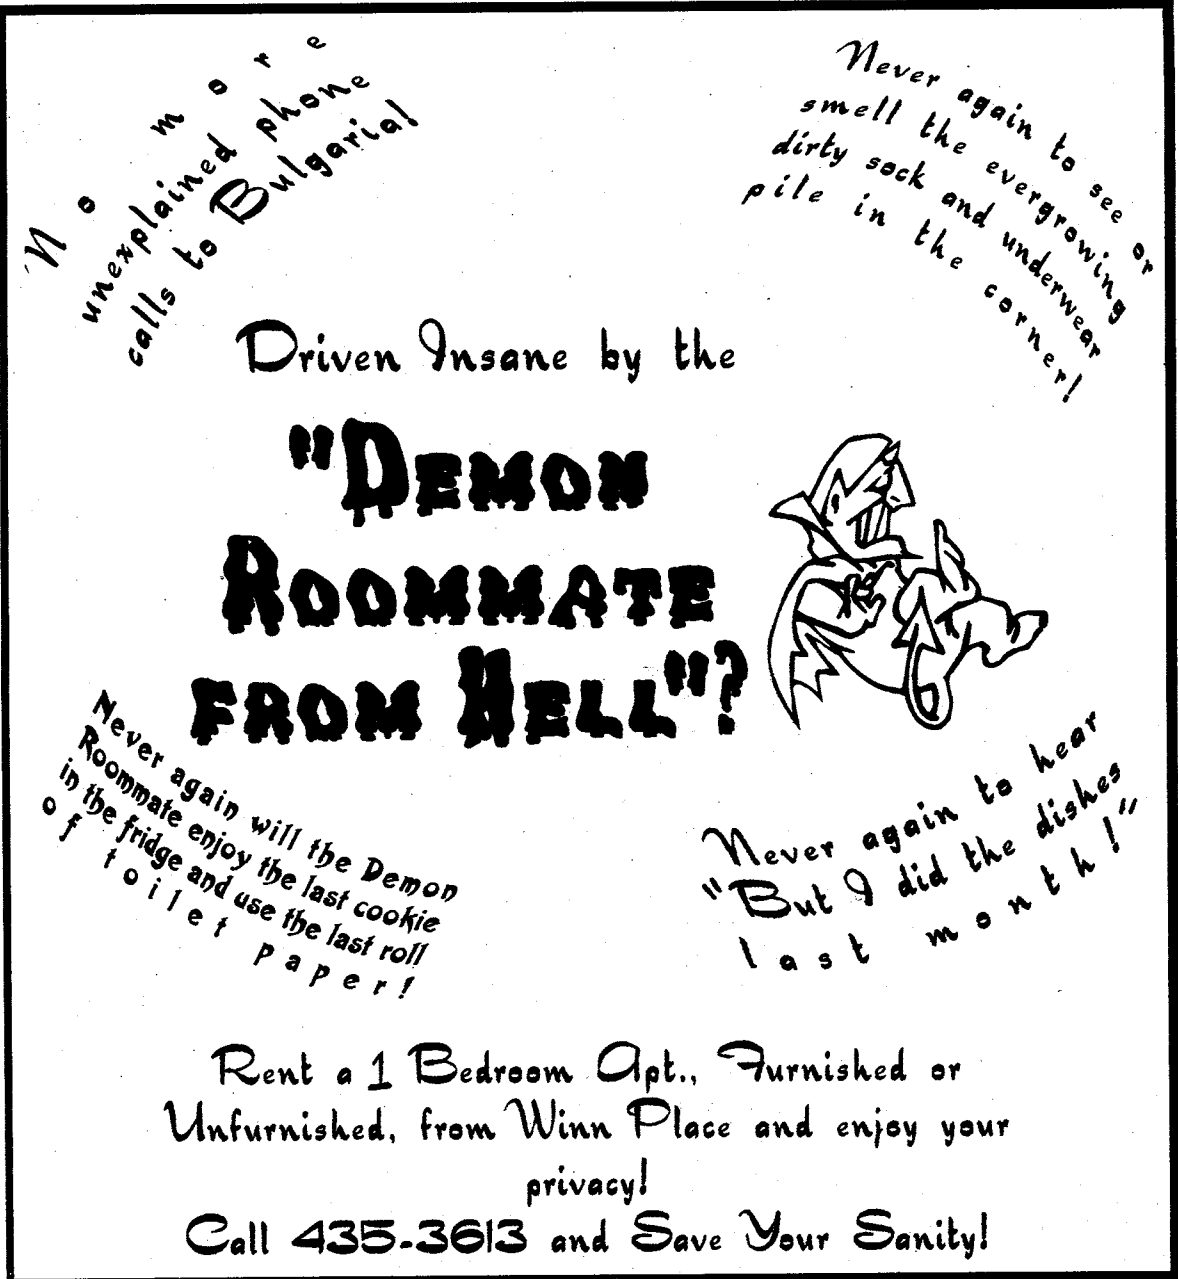 No more
unexplained phone
calls to Bulgaria!
Never again to see or
smell the evergrowing
dirty sock and underwear
pile in the corner!
Driven Insane by the
"Demon
Roommate
from Hell"?
Never again will the Demon
Roommate enjoy the last cookie
in the fridge and use the last roll
of toilet paper!
Never again to hear
"But I did the dishes
last month!"
Rent a 1 Bedroom Apt., Furnished or
Unfurnished, from Winn Place and enjoy your
privacy!
Call 435-3613 and Save Your Sanity!